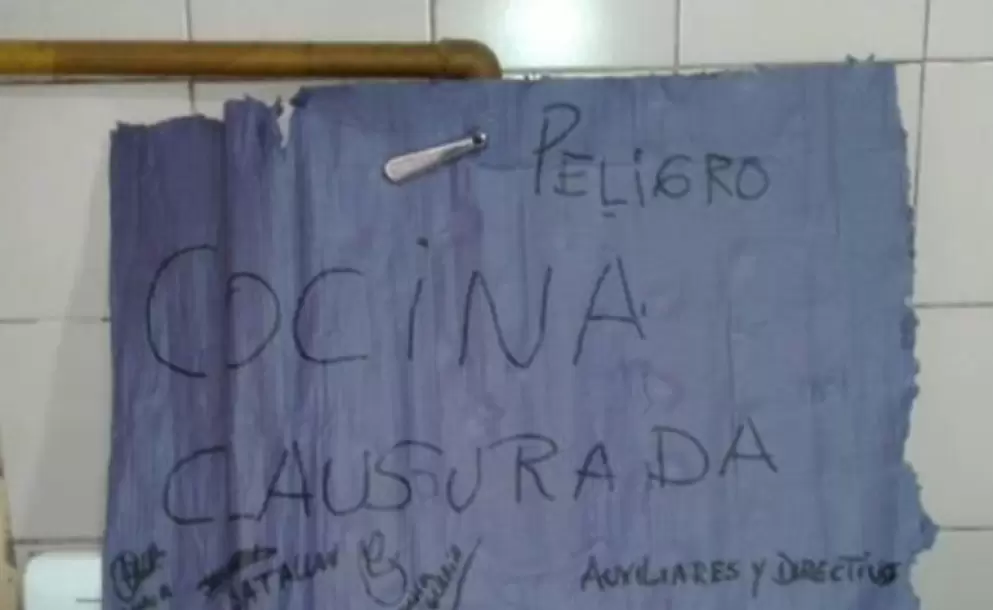 PELIGRO
COCINA
CLAUSURADA
AUXILIARES Y DIRECTIVOS